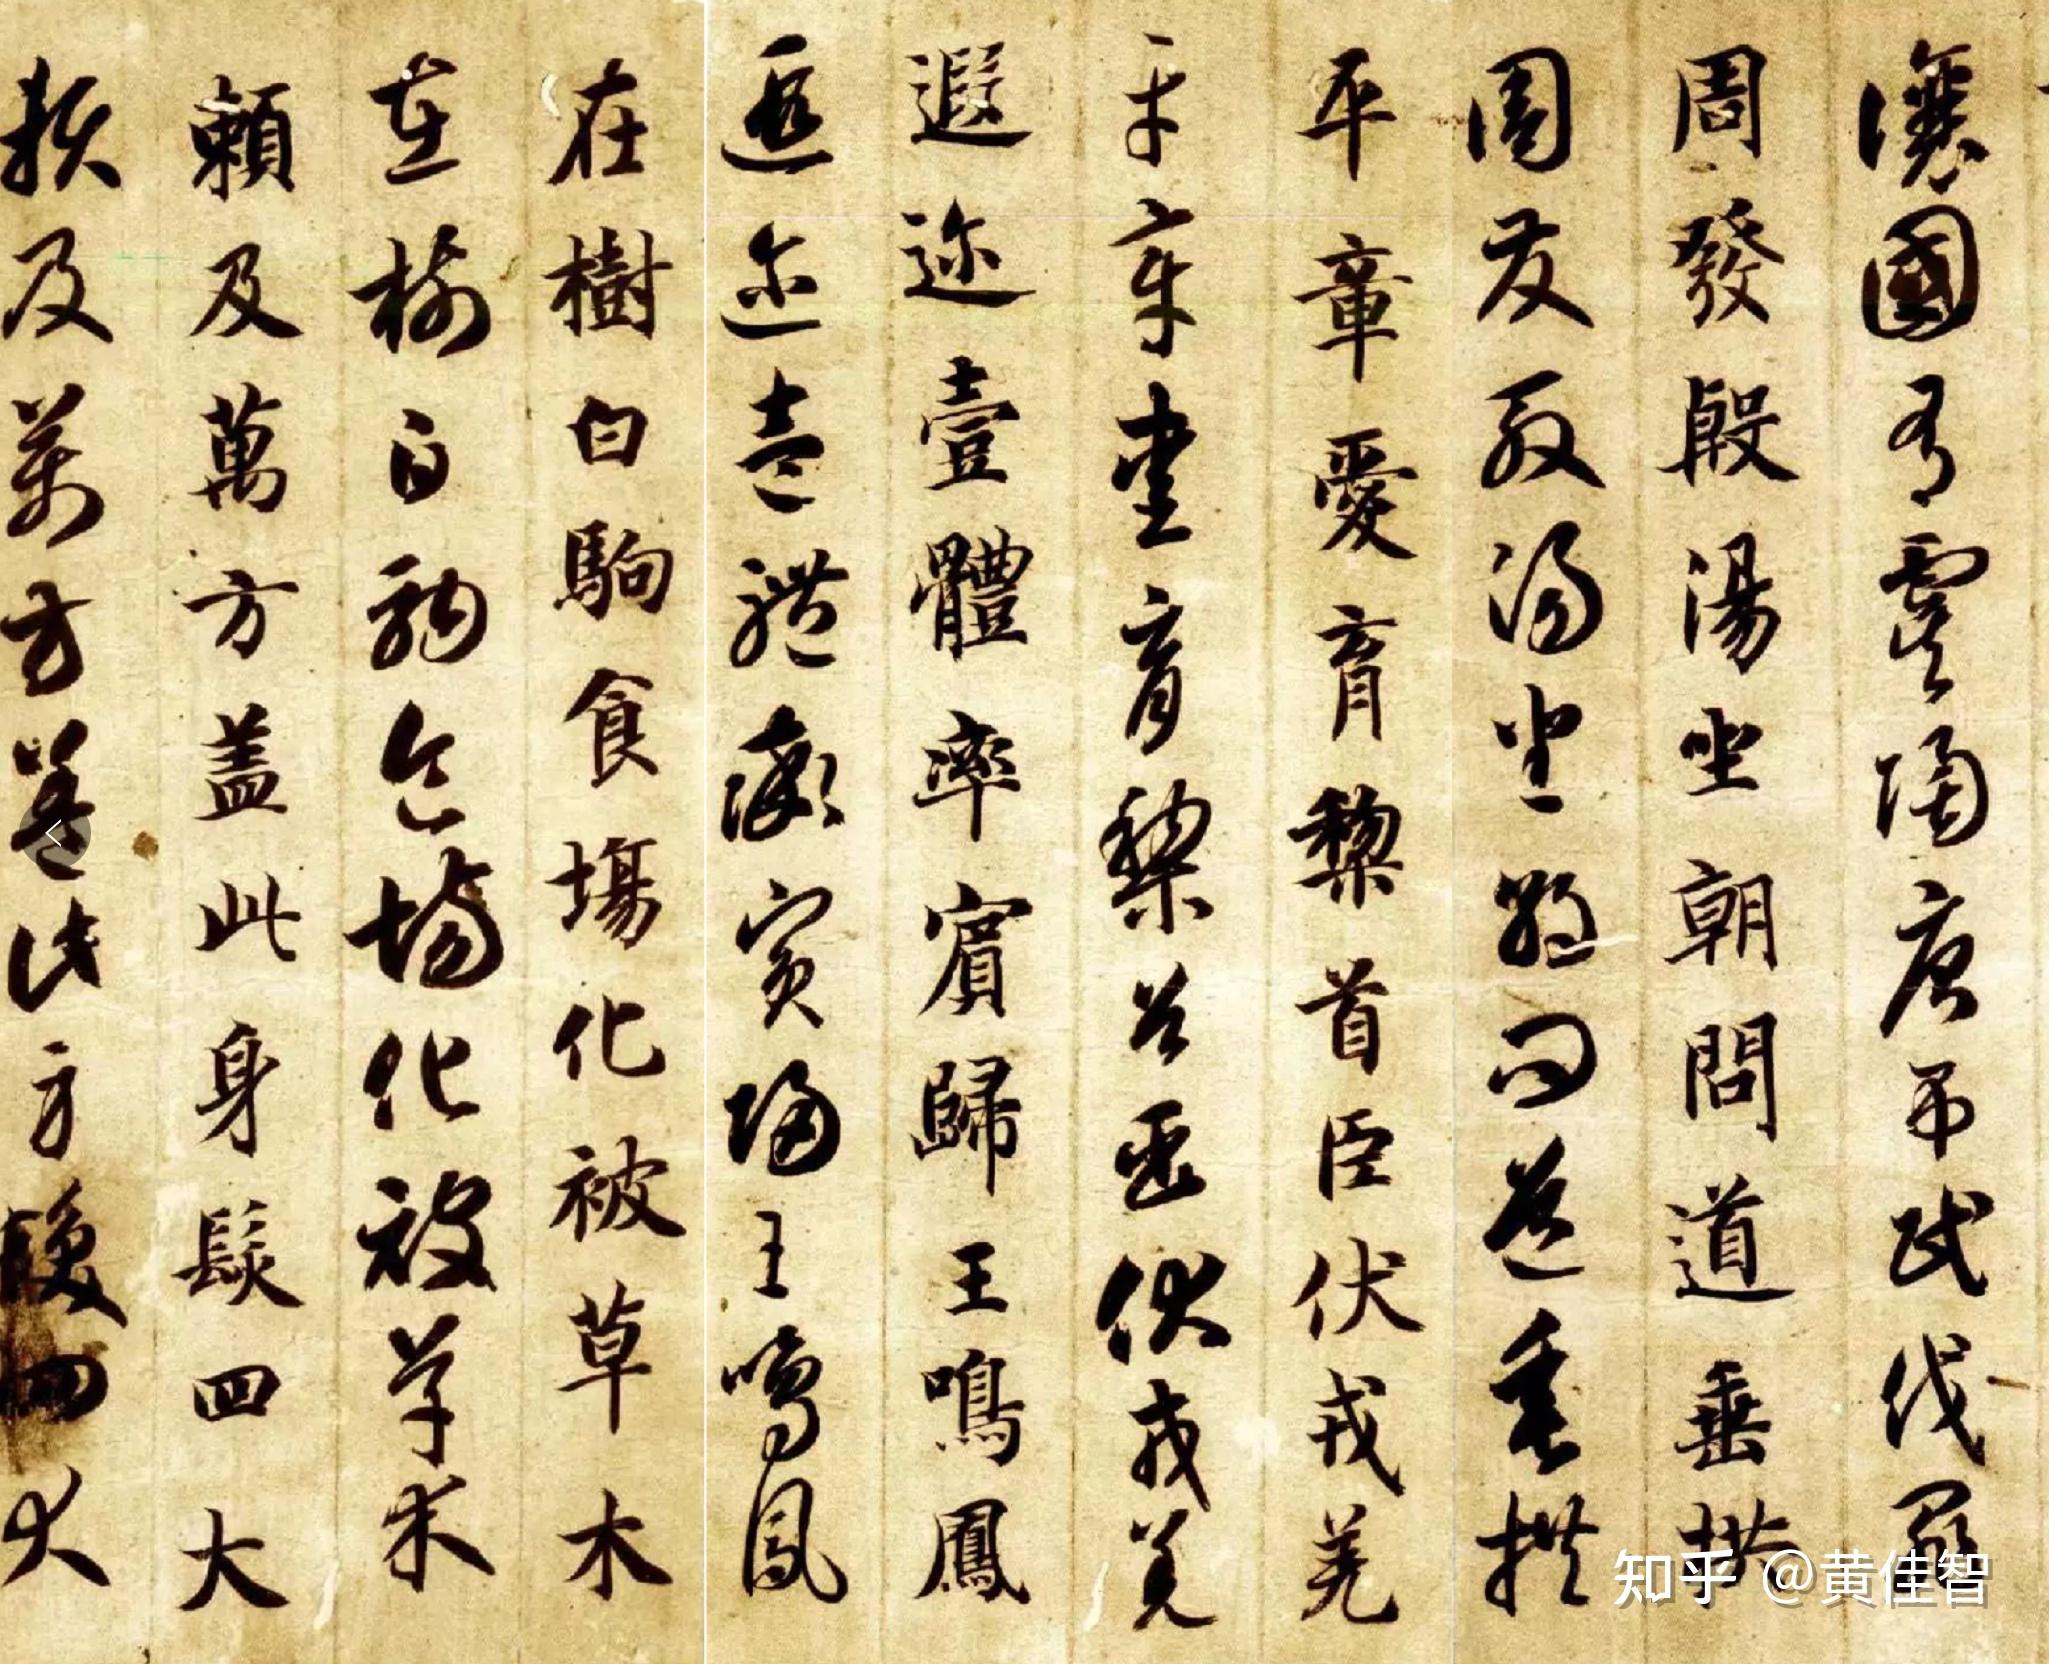 讓國有虞陶唐弔民伐罪
周發殷湯坐朝問道垂拱
周發殷湯坐朝問道垂拱
平章愛育黎首臣伏戎羌
平章愛育黎首臣伏戎羌
遐迩壹體率賓歸王鳴鳳
遐迩壹體率賓歸王鳴鳳
在樹白駒食場化被草木
在樹白駒食場化被草木
賴及萬方蓋此身髮四大
賴及萬方蓋此身髮四大
知乎 @黄佳智